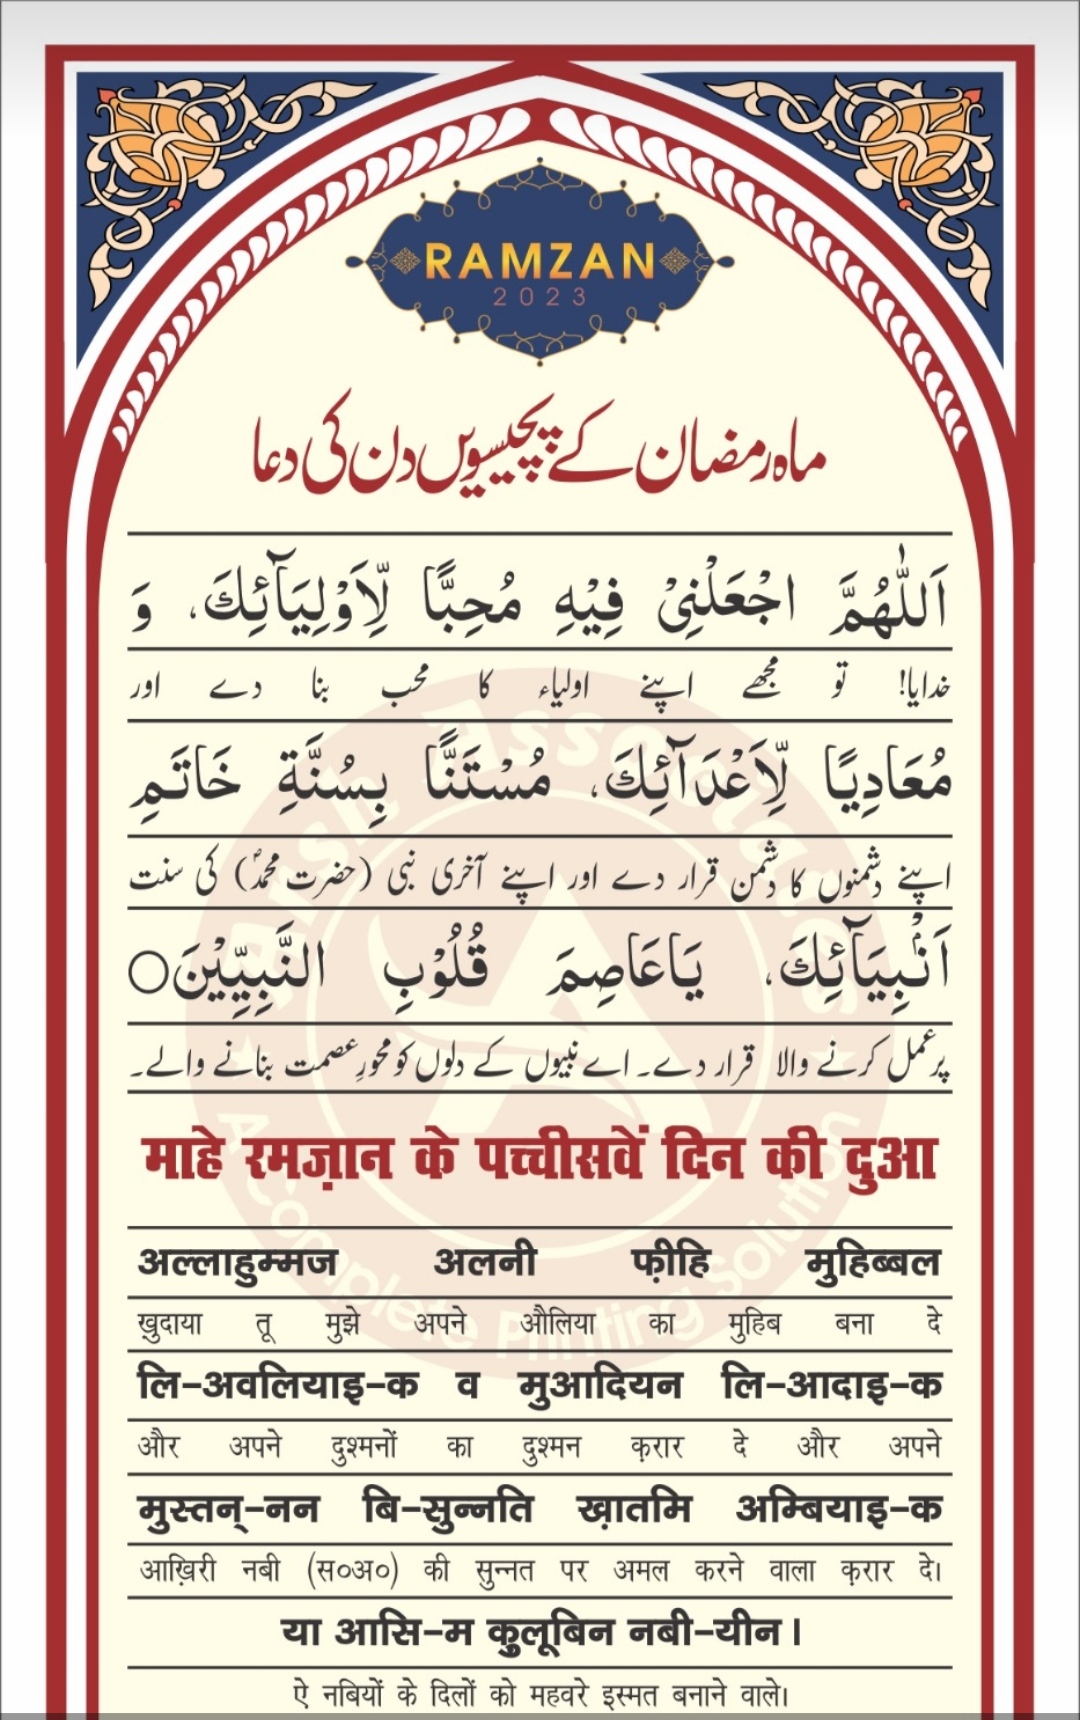 RAMZAN
2023
ماہ رمضان کے پچیسویں دن کی دعا
اَللّٰهُمَّ اجْعَلْنِیْ فِیْهِ مُحِبًّا لِّاَوْلِیَآئِكَ، وَ
خدایا! تو مجھے اپنے اولیاء کا محب بنا دے اور
مُعَادِیًا لِّاَعْدَآئِكَ، مُسْتَنًّا بِسُنَّةِ خَاتَمِ
اپنے دشمنوں کا دشمن قرار دے اور اپنے آخری نبی (حضرت محمدؐ) کی سنت
اَنْۢبِیَآئِكَ، یَاعَاصِمَ قُلُوْبِ النَّبِیِّیْنَ○
پر عمل کرنے والا قرار دے۔ اے نبیوں کے دلوں کو محورِ عصمت بنانے والے۔
माहे रमज़ान के पच्चीसवें दिन की दुआ
अल्लाहुम्मज अलनी फ़ीहि मुहिब्बल
ख़ुदाया तू मुझे अपने औलिया का मुहिब बना दे
लि-अवलियाइ-क व मुआदियन लि-आदाइ-क
और अपने दुश्मनों का दुश्मन क़रार दे और अपने
मुस्तन्-नन बि-सुन्नति ख़ातमि अम्बियाइ-क
आख़िरी नबी (स०अ०) की सुन्नत पर अमल करने वाला क़रार दे।
या आसि-म क़ुलूबिन नबी-यीन।
ऐ नबियों के दिलों को महवरे इस्मत बनाने वाले।
Associates
A Complete Printing Solution